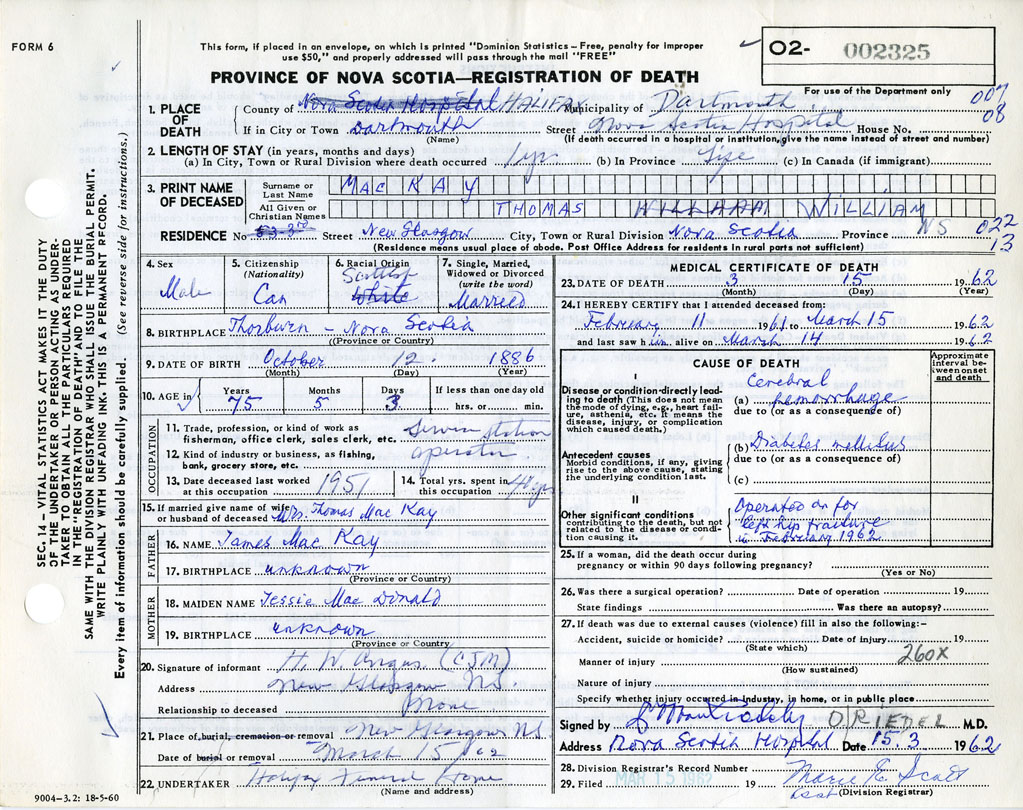 FORM 6
This form, if placed in an envelope, on which is printed "Dominion Statistics – Free, penalty for improper
use $50," and properly addressed will pass through the mail "FREE"
02- 002325
For use of the Department only
PROVINCE OF NOVA SCOTIA—REGISTRATION OF DEATH
007
08
1. PLACE OF DEATH
County of Nova Scotia Hospital HALIFAX Municipality of Dartmouth
If in City or Town Dartmouth Street Nova Scotia Hospital House No.
(Name) (If death occurred in a hospital or institution, give the name instead of street and number)
2. LENGTH OF STAY (in years, months and days)
(a) In City, Town or Rural Division where death occurred 1 yr (b) In Province Life (c) In Canada (if immigrant)
3. PRINT NAME OF DECEASED
Surname or Last Name MAC KAY
All Given or Christian Names THOMAS WILLIAM
RESIDENCE No. 53-3rd Street New Glasgow City, Town or Rural Division Nova Scotia Province NS
(Residence means usual place of abode. Post Office Address for residents in rural parts not sufficient)
022
13
4. Sex Male
5. Citizenship (Nationality) Can
6. Racial Origin Scottish White
7. Single, Married, Widowed or Divorced (write the word) Married
8. BIRTHPLACE Thorburn - Nova Scotia
(Province or Country)
9. DATE OF BIRTH October 12 1886
(Month) (Day) (Year)
10. AGE in Years 75 Months 5 Days 3 If less than one day old hrs. or min.
OCCUPATION
11. Trade, profession, or kind of work as fisherman, office clerk, sales clerk, etc. Service station
12. Kind of industry or business, as fishing, bank, grocery store, etc. operator
13. Date deceased last worked at this occupation 1951
14. Total yrs. spent in this occupation 40 yrs
15. If married give name of wife or husband of deceased Mrs. Thomas Mac Kay
FATHER
16. NAME James Mac Kay
17. BIRTHPLACE unknown
(Province or Country)
MOTHER
18. MAIDEN NAME Jessie Mac Donald
19. BIRTHPLACE unknown
(Province or Country)
20. Signature of informant H. W. Angus (CJM)
Address New Glasgow N.S.
Relationship to deceased None
21. Place of burial, cremation or removal New Glasgow N.S.
Date of burial or removal March 15/62
22. UNDERTAKER Halifax Funeral Home
(Name and address)
9004-3.2: 18-5-60
MEDICAL CERTIFICATE OF DEATH
23. DATE OF DEATH 3 15 1962
(Month) (Day) (Year)
24. I HEREBY CERTIFY that I attended deceased from:
February 11 1961 to March 15 1962
and last saw him alive on March 14 1962
CAUSE OF DEATH
Approximate interval between onset and death
I
Disease or condition directly leading to death (This does not mean the mode of dying, e.g., heart failure, asthenia, etc. It means the disease, injury, or complication which caused death.)
(a) Cerebral hemorrhage
due to (or as a consequence of)
Antecedent causes
Morbid conditions, if any, giving rise to the above cause, stating the underlying condition last.
(b) Diabetes mellitus
due to (or as a consequence of)
(c)
II
Other significant conditions contributing to the death, but not related to the disease or condition causing it.
Operated on for
left hip fracture
in February 1962
25. If a woman, did the death occur during
pregnancy or within 90 days following pregnancy?
(Yes or No)
26. Was there a surgical operation? Date of operation 19
State findings Was there an autopsy?
27. If death was due to external causes (violence) fill in also the following:–
Accident, suicide or homicide? Date of injury 19
(State which)
Manner of injury 260X
(How sustained)
Nature of injury
Specify whether injury occurred in industry, in home, or in public place
Signed by M.D.
Address Nova Scotia Hospital Date 15.3 1962
28. Division Registrar's Record Number
29. Filed MAR 15 1962 19 Marie E. Scott
(Division Registrar)
SEC. 14—VITAL STATISTICS ACT MAKES IT THE DUTY
OF THE UNDERTAKER OR PERSON ACTING AS UNDER-
TAKER TO OBTAIN ALL THE PARTICULARS REQUIRED
IN THE "REGISTRATION OF DEATH" AND TO FILE THE
SAME WITH THE DIVISION REGISTRAR WHO SHALL ISSUE THE BURIAL PERMIT.
WRITE PLAINLY WITH UNFADING INK. THIS IS A PERMANENT RECORD.
Every item of information should be carefully supplied. (See reverse side for instructions.)